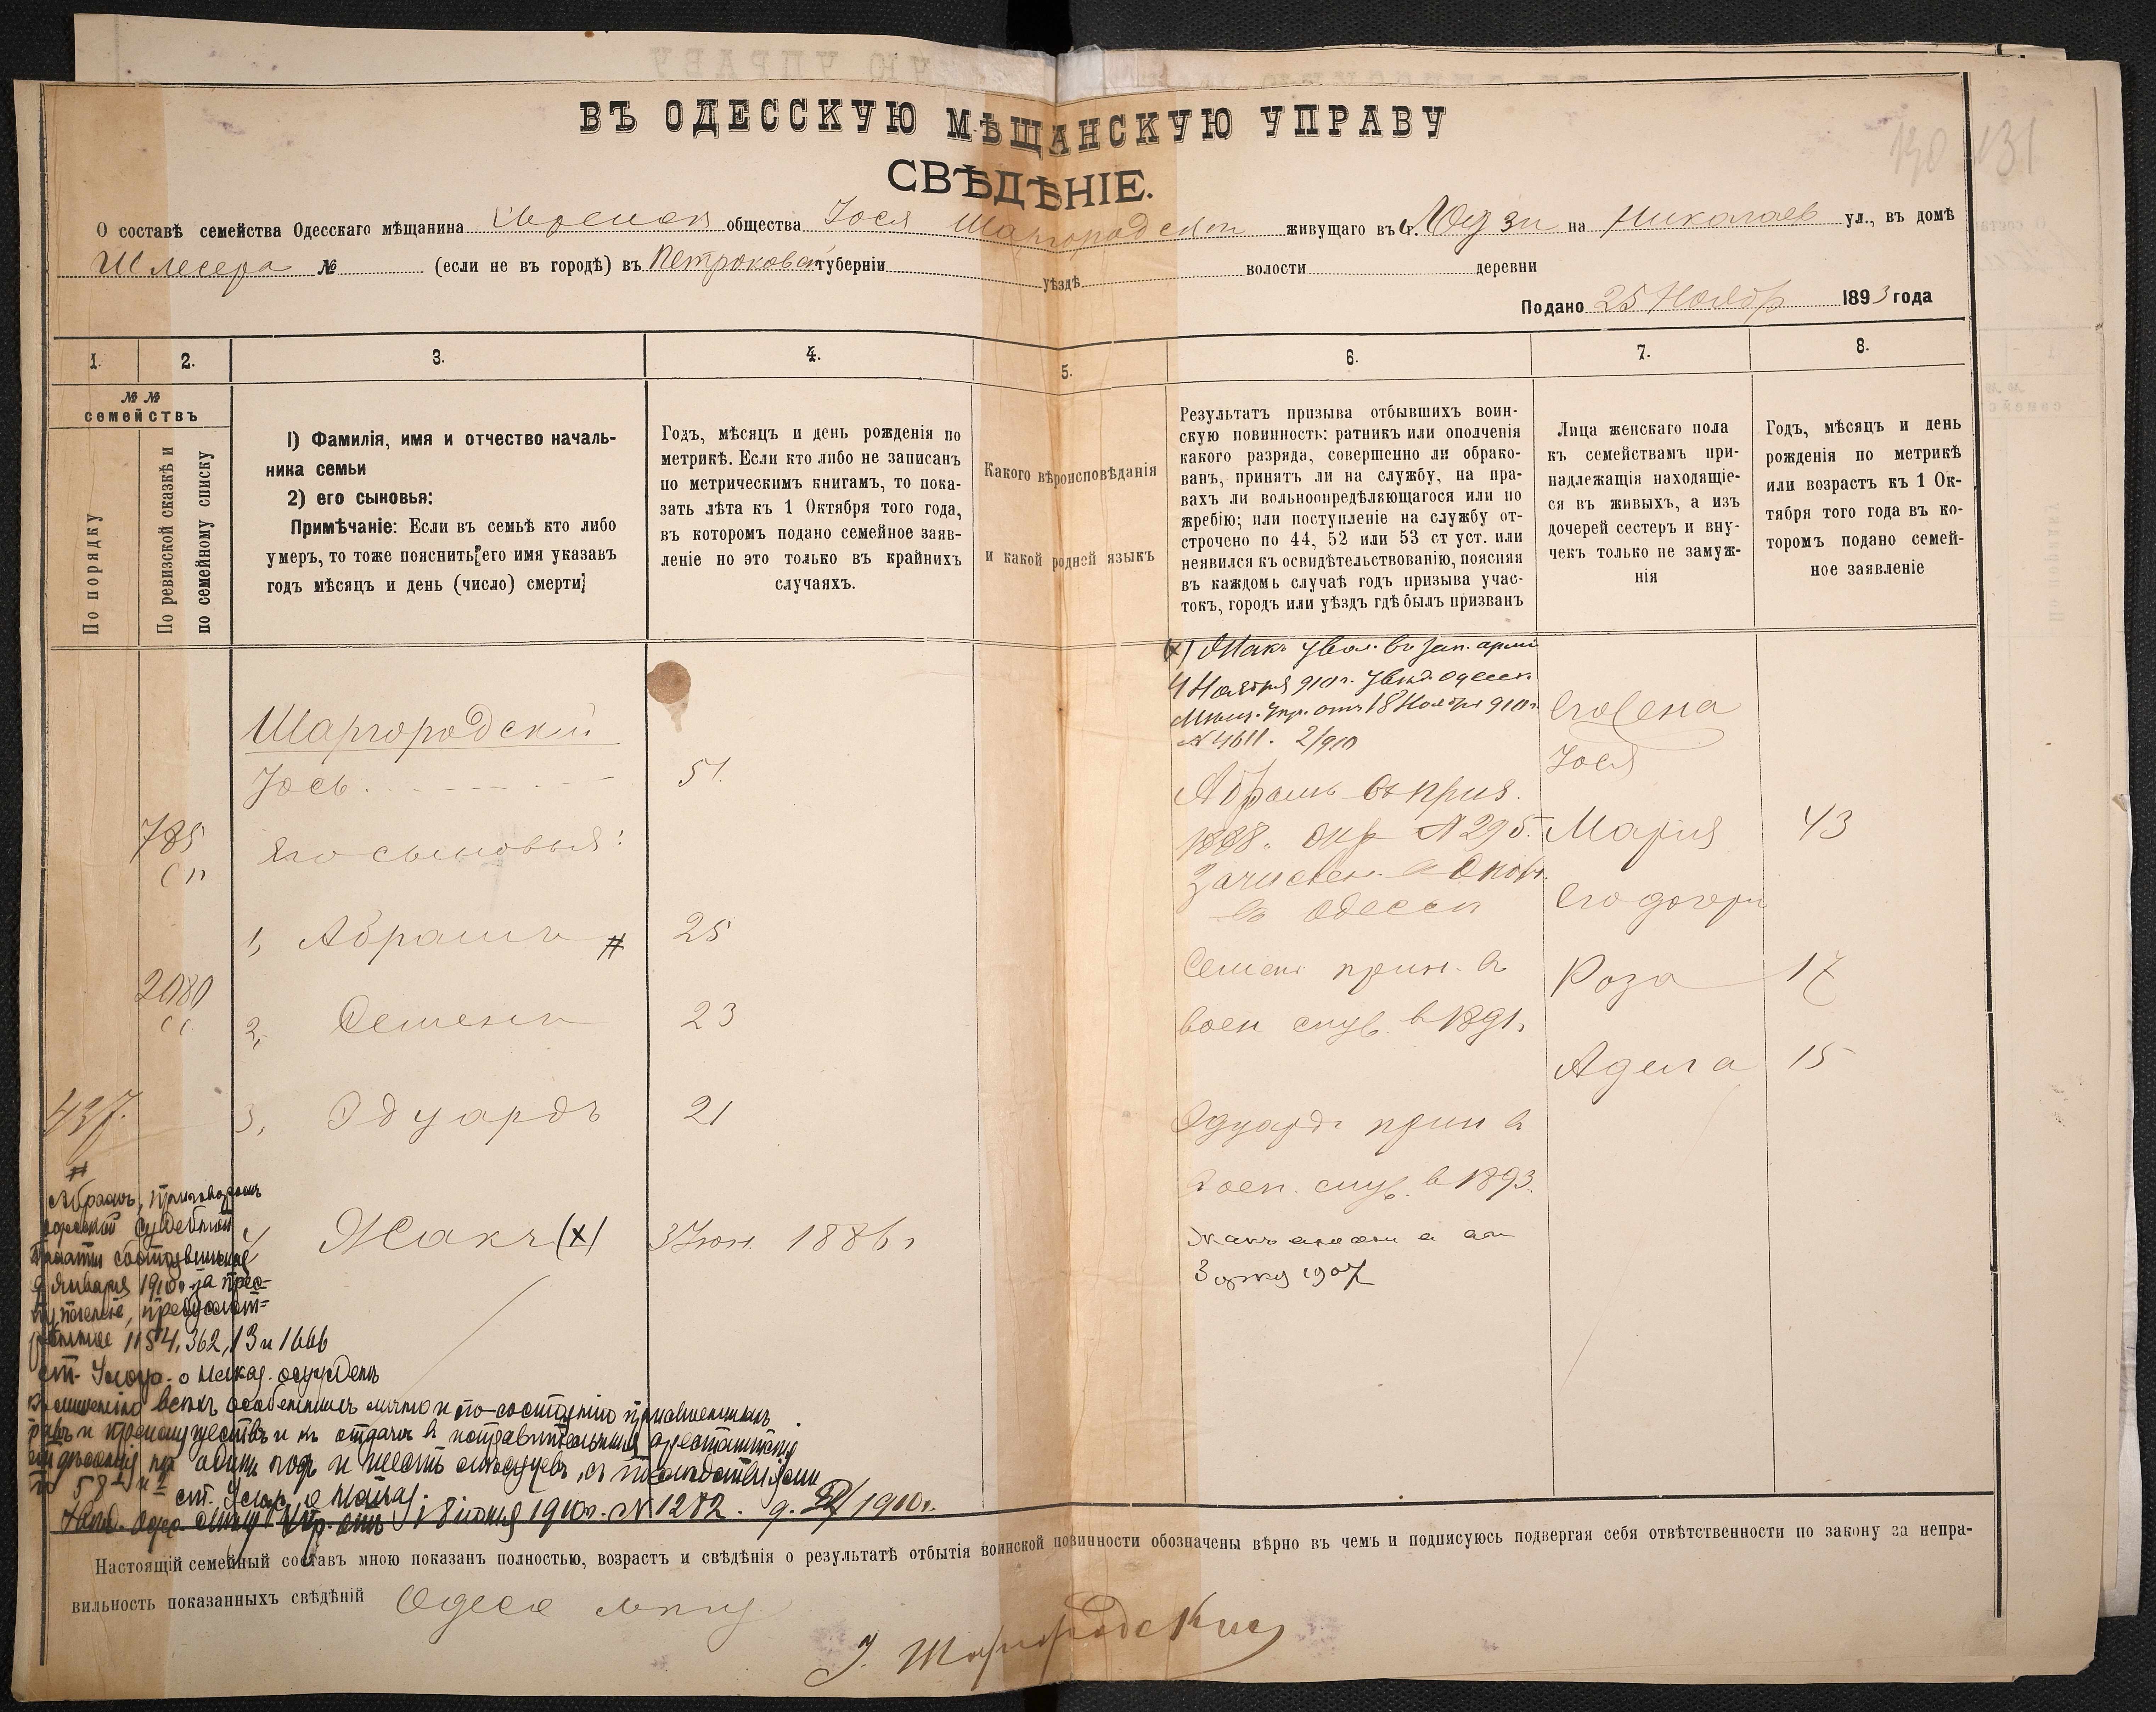 ВЪ ОДЕССКУЮ МѢЩАНСКУЮ УПРАВУ
СВѢДѢНІЕ.
130 131
О составѣ семейства Одесскаго мѣщанина общества Іося Шаргородскаго живущаго въ г. Лодзи на Николаев ул., въ домѣ
Шлесера № (если не въ городѣ) въ Петроковск губерніи уѣздѣ волости деревни
Подано 25 Ноябр 1893 года
1. 2. 3. 4. 5. 6. 7. 8.
№ №
семействъ
По порядку
По ревизской сказкѣ и
по семейному списку
1) Фамилія, имя и отчество началь-
ника семьи
2) его сыновья:
Примѣчаніе: Если въ семьѣ кто либо
умеръ, то тоже пояснить его имя указавъ
годъ мѣсяцъ и день (число) смерти
Годъ, мѣсяцъ и день рожденія по
метрикѣ. Если кто либо не записанъ
по метрическимъ книгамъ, то пока-
зать лѣта къ 1 Октября того года,
въ которомъ подано семейное заяв-
леніе но это только въ крайнихъ
случаяхъ.
Какого вѣроисповѣданія
и какой родней языкъ
Результатъ призыва отбывшихъ воин-
скую повинность: ратникъ или ополченія
какого разряда, совершенно ли обрако-
ванъ, принятъ ли на службу, на пра-
вахъ ли вольноопредѣляющагося или по
жребію; или поступленіе на службу от-
строчено по 44, 52 или 53 ст уст. или
неявился къ освидѣтельствованію, поясняя
въ каждомъ случаѣ годъ призыва учас-
токъ, городъ или уѣздъ гдѣ былъ призванъ
Лица женскаго пола
къ семействамъ при-
надлежащія находящіе-
ся въ живыхъ, а изъ
дочерей сестеръ и вну-
чекъ только не замуж-
нія
Годъ, мѣсяцъ и день
рожденія по метрикѣ
или возрастъ къ 1 Ок-
тября того года въ ко-
торомъ подано семей-
ное заявленіе
(x) Жакъ увол. въ зап. арміи
4 Ноября 910 г. увѣд. Одесск.
Мѣщ. Упр. отъ 18 Ноября 910 г.
№ 4611. 2/910
Шаргородскій
Іось 51.
785
Его сыновья:
1, Абрамъ # 25
2080
2, Семенъ 23
437.
3, Эдуардъ 21
4, Жакъ (x) 3 Іюн. 1886 г
Абрамъ
1888. № 295.
Зачислен. в Опол.
въ Одессѣ
Семенъ прин. въ
воен служ. в 1891.
Эдуардъ прин въ
воен. служ. в 1893.
Жакъ
1907
Его жена
Іося
Марія 43
Его дочери
Роза 17
Адела 15
#
Абрамъ, приговоромъ
Одесской Судебной
Палаты состоявшимся
9 Января 1910 г. за прес-
тупленіе, предусмот-
рѣнное 1154, 362, 13 и 1666
ст. Улож. о наказ. осужденъ
къ лишенію всѣхъ особенныхъ лично и по состоянію присвоенныхъ
правъ и преимуществъ и къ отдачѣ въ исправительныя арестантскія
отдѣленія на одинъ годъ и шесть мѣсяцевъ, съ послѣдствіями
по 58
ст. Улож. о наказ.
Увѣд. Одес. Мѣщ. Упр. отъ 18 іюня 1910 г. № 1282. 1910 г.
Настоящій семейный составъ мною показанъ полностью, возрастъ и свѣдѣнія о результатѣ отбытія воинской повинности обозначены вѣрно въ чемъ и подписуюсь подвергая себя отвѣтственности по закону за непра-
вильность показанныхъ свѣдѣній
І. Шаргородский